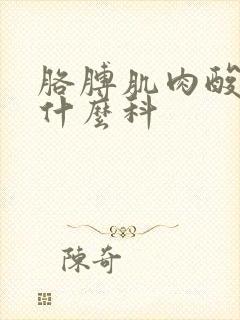 胳膊肌肉酸
什麼科
陳奇